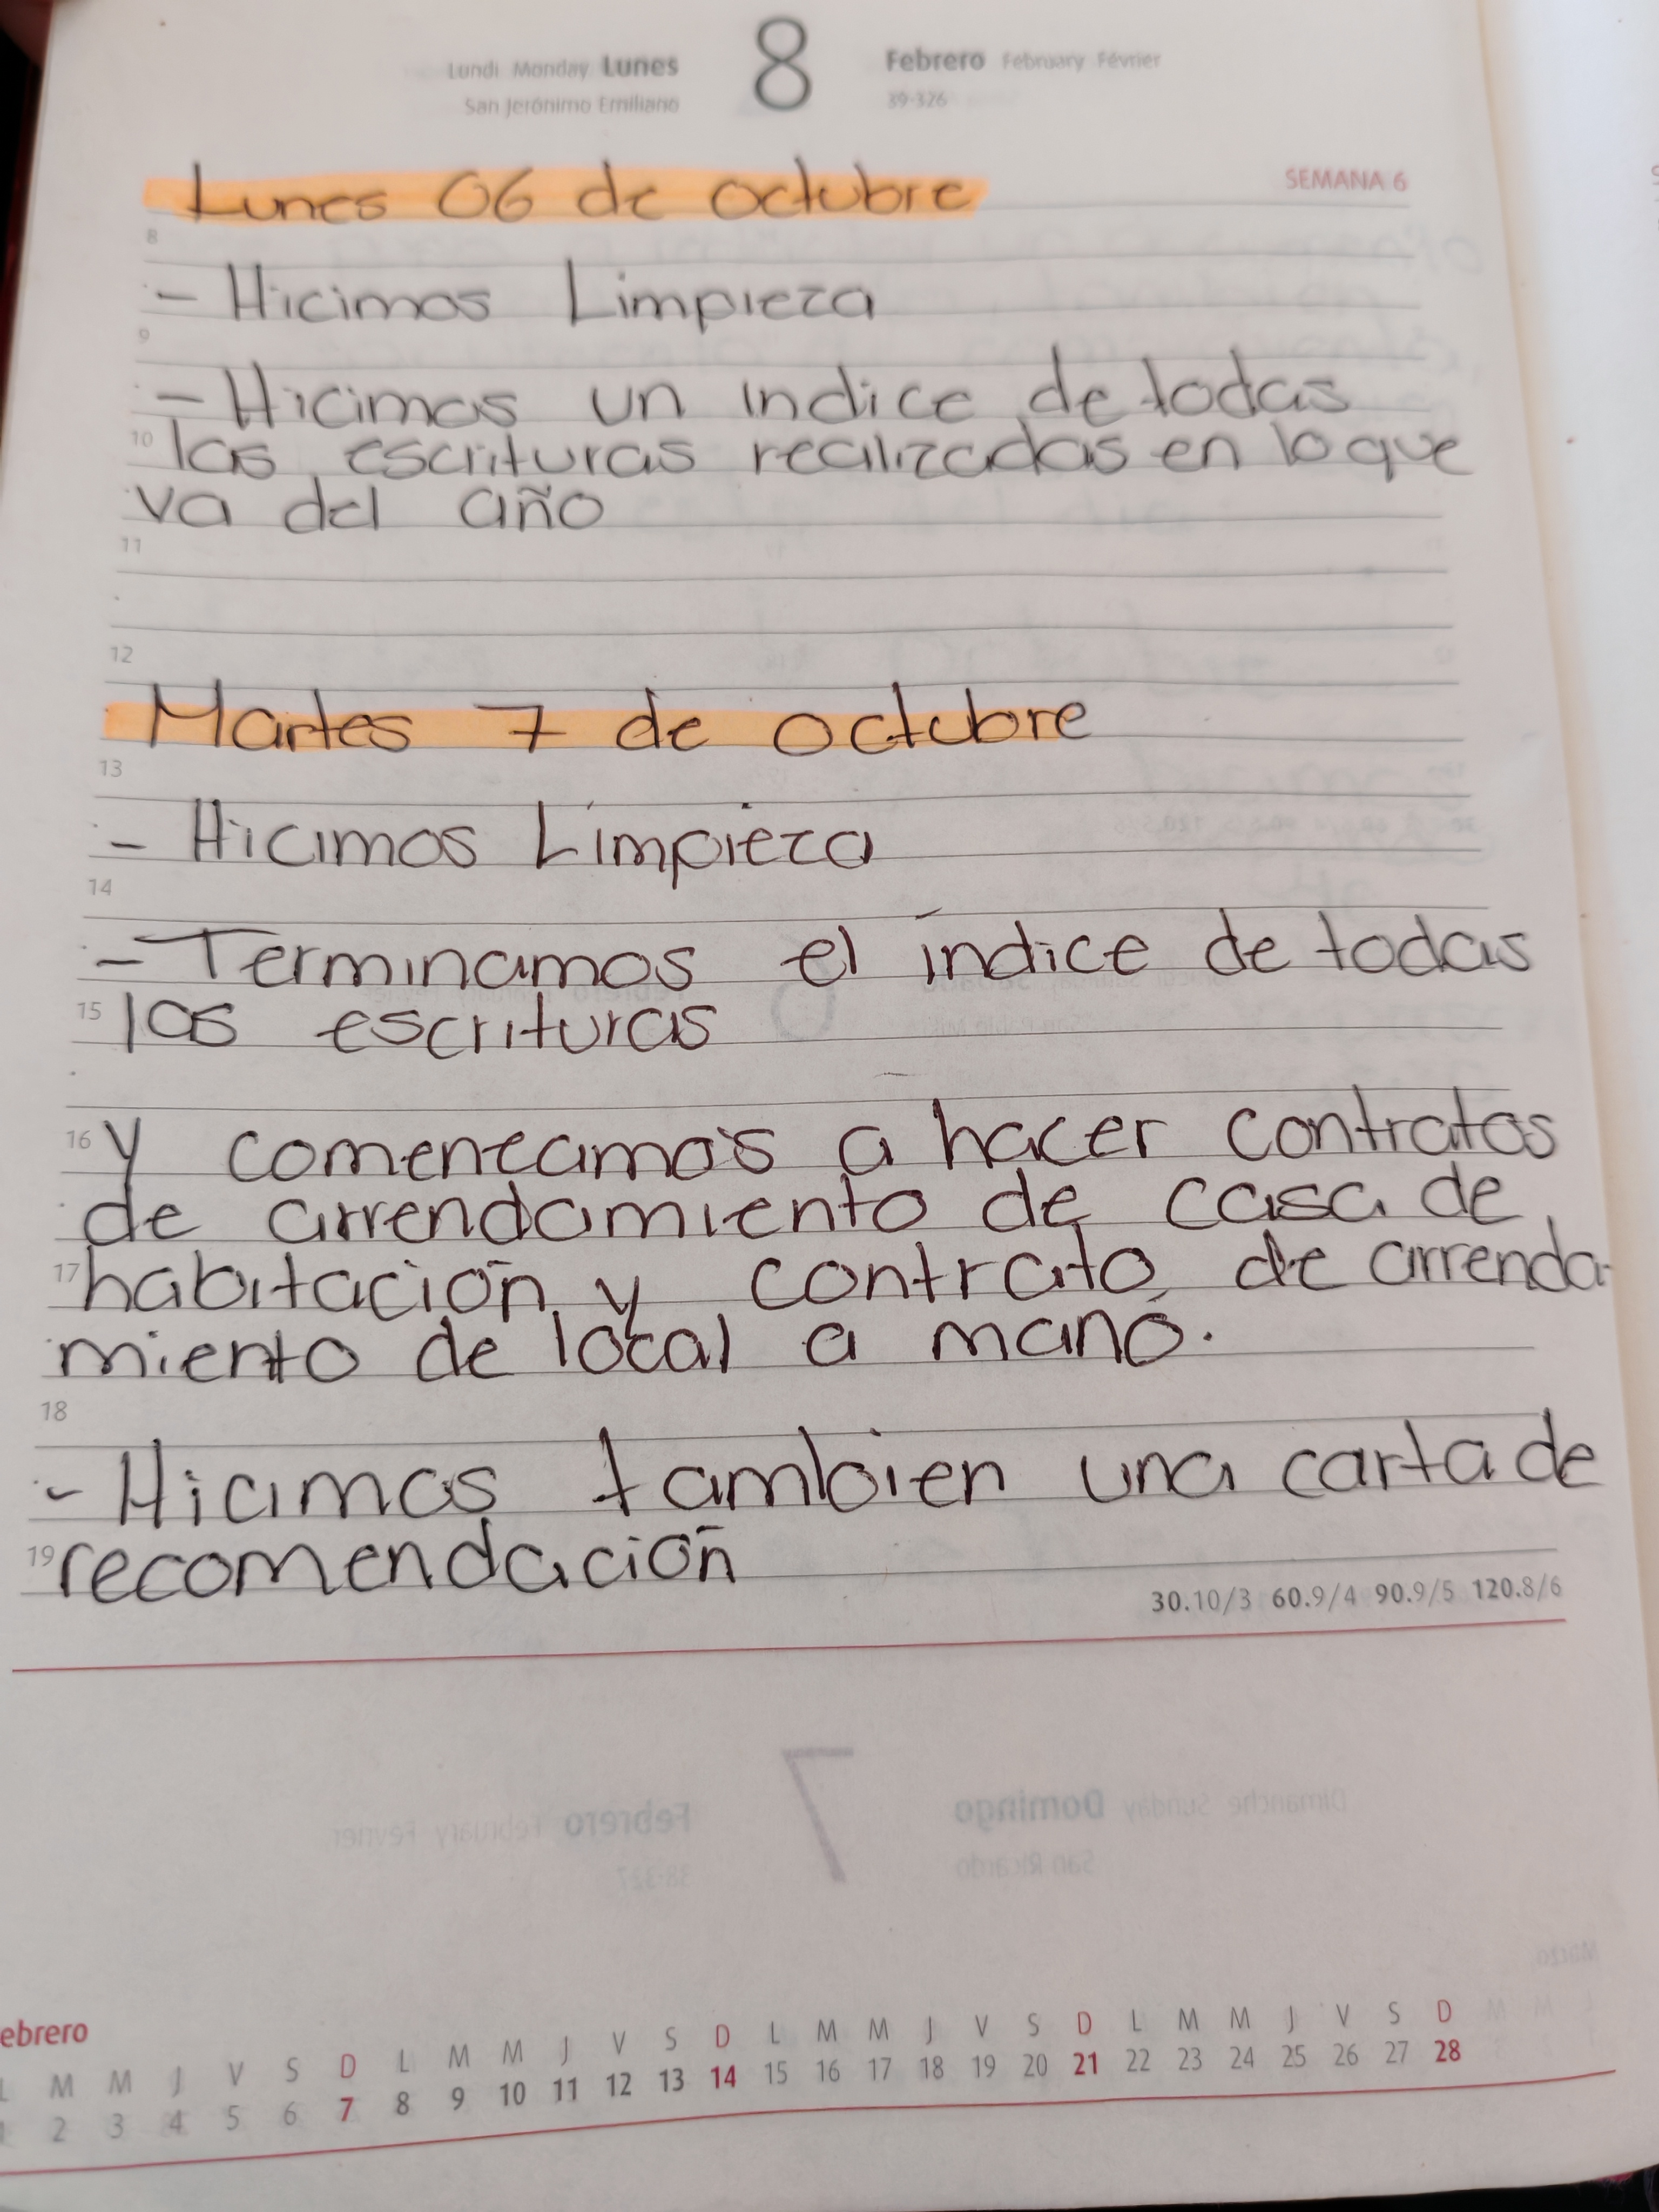 Lundi Monday Lunes 8 Febrero February Février
San Jerónimo Emiliano 39-326
Lunes 06 de octubre SEMANA 6
8
- Hicimos Limpieza
9
- Hicimos un indice de todas
10 las escrituras realizadas en lo que
va del año
11
12
Martes 7 de octubre
13
- Hicimos Limpieza
14
- Terminamos el índice de todas
15 las escrituras
16 y comenzamos a hacer contratos
de arrendamiento de casa de
17 habitación y contrato de arrenda-
miento de local a mano.
18
- Hicimos tambien una carta de
19 recomendación
30.10/3 60.9/4 90.9/5 120.8/6
7
Febrero February Février Domingo Sunday Dimanche
38-327 San Ricardo
Marzo
ebrero
L M M J V S D L M M J V S D L M M J V S D L M M J V S D
1 2 3 4 5 6 7 8 9 10 11 12 13 14 15 16 17 18 19 20 21 22 23 24 25 26 27 28